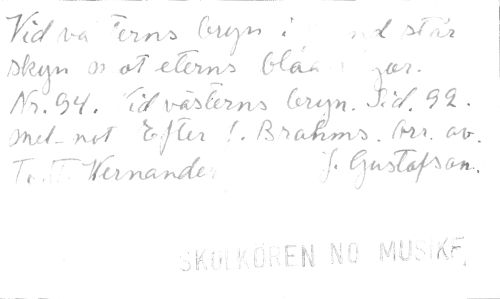 Vid västerns bryn i står
skyn mot eterns blåa
Nr. 94. Vid västerns bryn. Sid. 92.
mel-not Efter J. Brahms. Arr. av.
J. Gustafson.
SKOLKÖREN NO MUSIKF